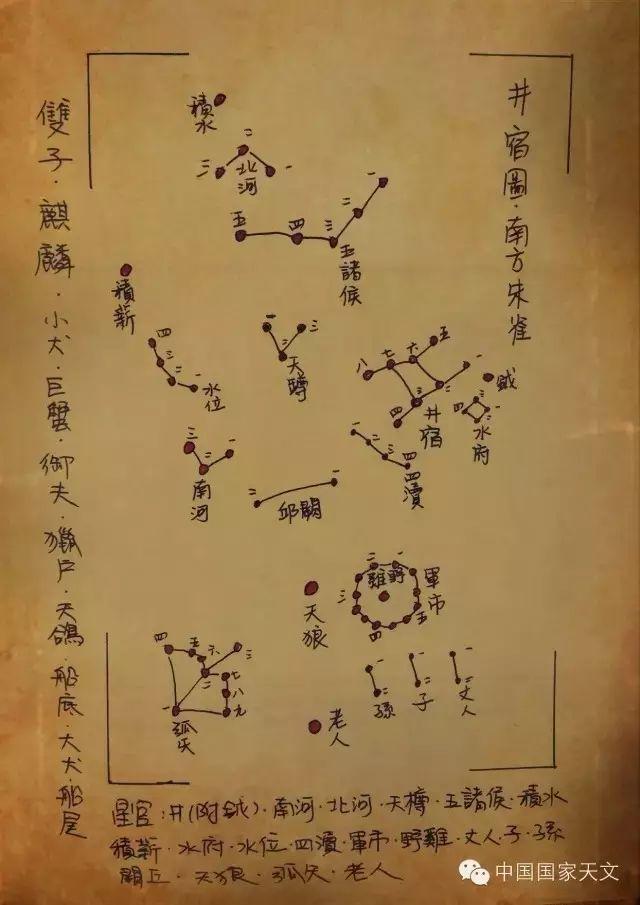 井宿圖·南方朱雀
雙子·麒麟·小犬·巨蟹·御夫·獵戶·天鴿·船底·大犬·船尾
積水
一
二
三
北河
一
二
三
四
五
五諸侯
積薪
四
三
二
一
水位
一
二
三
天罇
八
七
六
五
一
二
三
四
井宿
鉞
四
一
水府
三
二
一
南河
一
二
三
四
四瀆
二
一
邱闕
天狼
二
一
三
四
五
野雞
軍市
四
五
六
三
二
七
八
九
一
弧矢
老人
一
二
孫
一
二
子
一
二
丈人
星官:井(附鉞)·南河·北河·天樽·五諸侯·積水
積薪·水府·水位·四瀆·軍市·野雞·丈人·子·孫
闕丘·天狼·弧矢·老人
中国国家天文